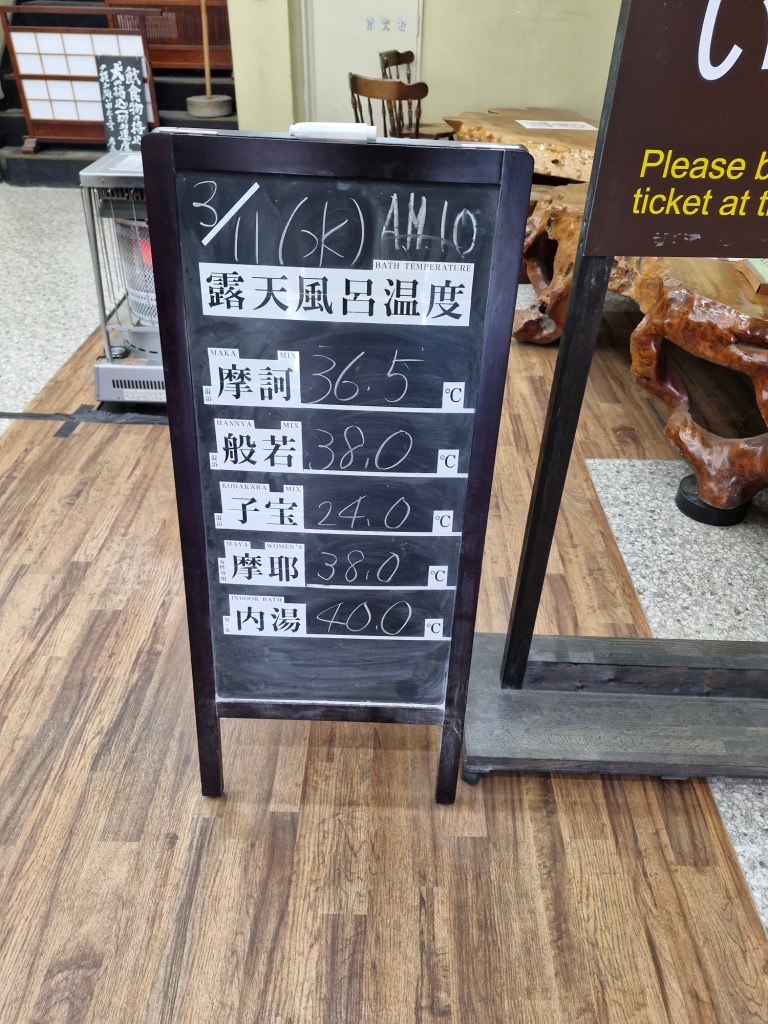 飲食物の持込
犬の持込一切お断り
3/11(水) AM.10
BATH TEMPERATURE
露天風呂温度
MAKA MIX
混浴 摩訶 36.5 ℃
HANNYA MIX
混浴 般若 38.0 ℃
KODAKARA MIX
混浴 子宝 24.0 ℃
MAYA WOMEN'S
女性専用 摩耶 38.0 ℃
INDOOR BATH
内湯 40.0 ℃
Please b
ticket at t